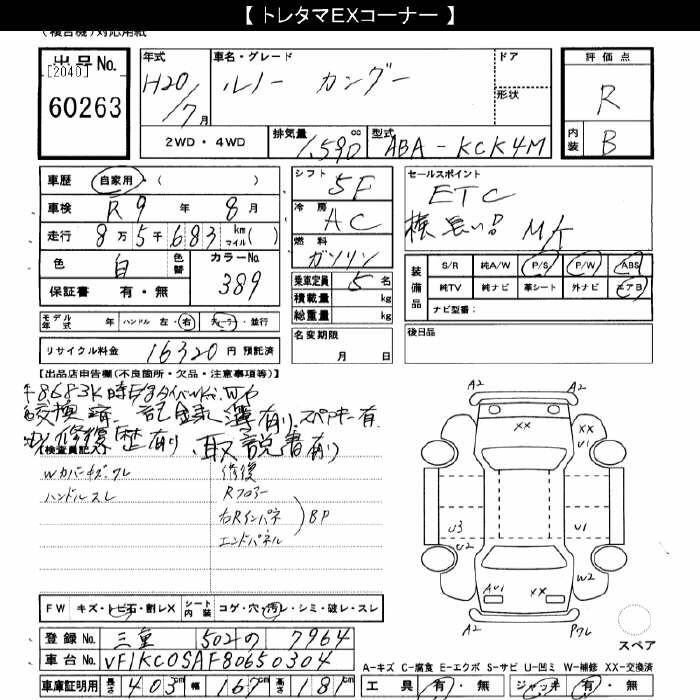 【 トレタマEXコーナー 】
(複合機)対応用紙
出品No.
[2040]
60263
年式 H20/7月
車名・グレード ルノー カングー
ドア
形状
評価点
R
内装 B
2WD・4WD
排気量 1,590 cc
型式 ABA-KCK4M
車歴 自家用・( )
車検 R9年8月
走行 8万5千683 km マイル( )
色 白 色替
カラーNo. 389
保証書 有・無
シフト 5F
冷房 AC
燃料 ガソリン
乗車定員 5名
積載量 kg
総重量 kg
セールスポイント
ETC
M/T
装備品 S/R 純A/W P/S P/W ABS
純TV 純ナビ 革シート 外ナビ エアB
ナビ型番:
モデル年式 年 ハンドル 左・右 ディーラー・並行
リサイクル料金 16320円 預託済
名変期限 月 日
後日品
【出品店申告欄(不良箇所・欠品・注意事項等)】
8683K時 タイベル W/P
交換済 記録簿有り スペアキー有
修復歴有り 取説書有り
【検査員記入】
Wカバーキズ、ワレ
ハンドルスレ
修復
Rフロアー
右Rインパネ
エンドパネル
BP
A2 A2
XX XX
U1
U3 U1
U2
W2
AU1 XX
A2 Pワレ
スペア
FW キズ・トビ石・割レX シート内装 コゲ・穴・汚レ・シミ・破レ・スレ
登録No. 三重 502 の 7964
車台No. VF1KC0SAF80650304
車庫証明用 長さ 403cm 幅 167cm 高さ 181cm
A-キズ C-腐食 E-エクボ S-サビ U-凹ミ W-補修 XX-交換済
工具 有・無 ジャッキ 有・無